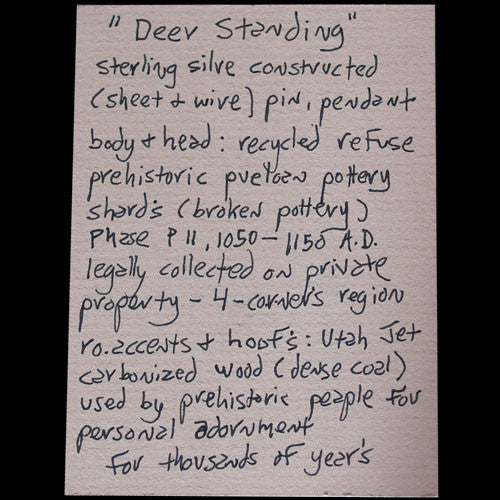 "Deer Standing"
sterling silve constructed
(sheet & wire) pin, pendant
body & head: recycled refuse
prehistoric puebloan pottery
shard's (broken pottery)
Phase P II, 1050 - 1150 A.D.
legally collected on private
property - 4-corner's region
ro.accents & hoof's: Utah Jet
carbonized wood (dense coal)
used by prehistoric people for
personal adornment
for thousands of year's